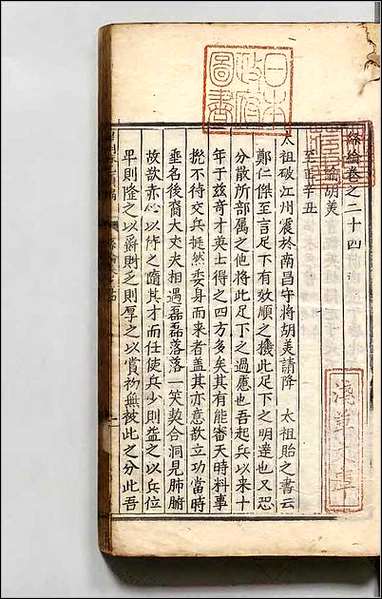 絲綸卷之二十四
諭胡美
至正辛丑
太祖破江州震於南昌守將胡美請降　太祖貽之書云
鄭仁傑至言足下有效順之機此足下之明達也又恐
分散所部属之他將此足下之過慮也吾起兵以来十
年于兹奇才英士得之四方多矣其有能審天時料事
機不待交兵挺然委身而来者盖其亦意欲立功當時
垂名後裔大丈夫相遇磊磊落落一笑契合洞見肺腑
故欲赤心以待之隨其才而任使兵少則益之以兵位
卑則隆之以爵財乏則厚之以賞初無彼此之分此吾
日本
政府
圖書
淺草文庫